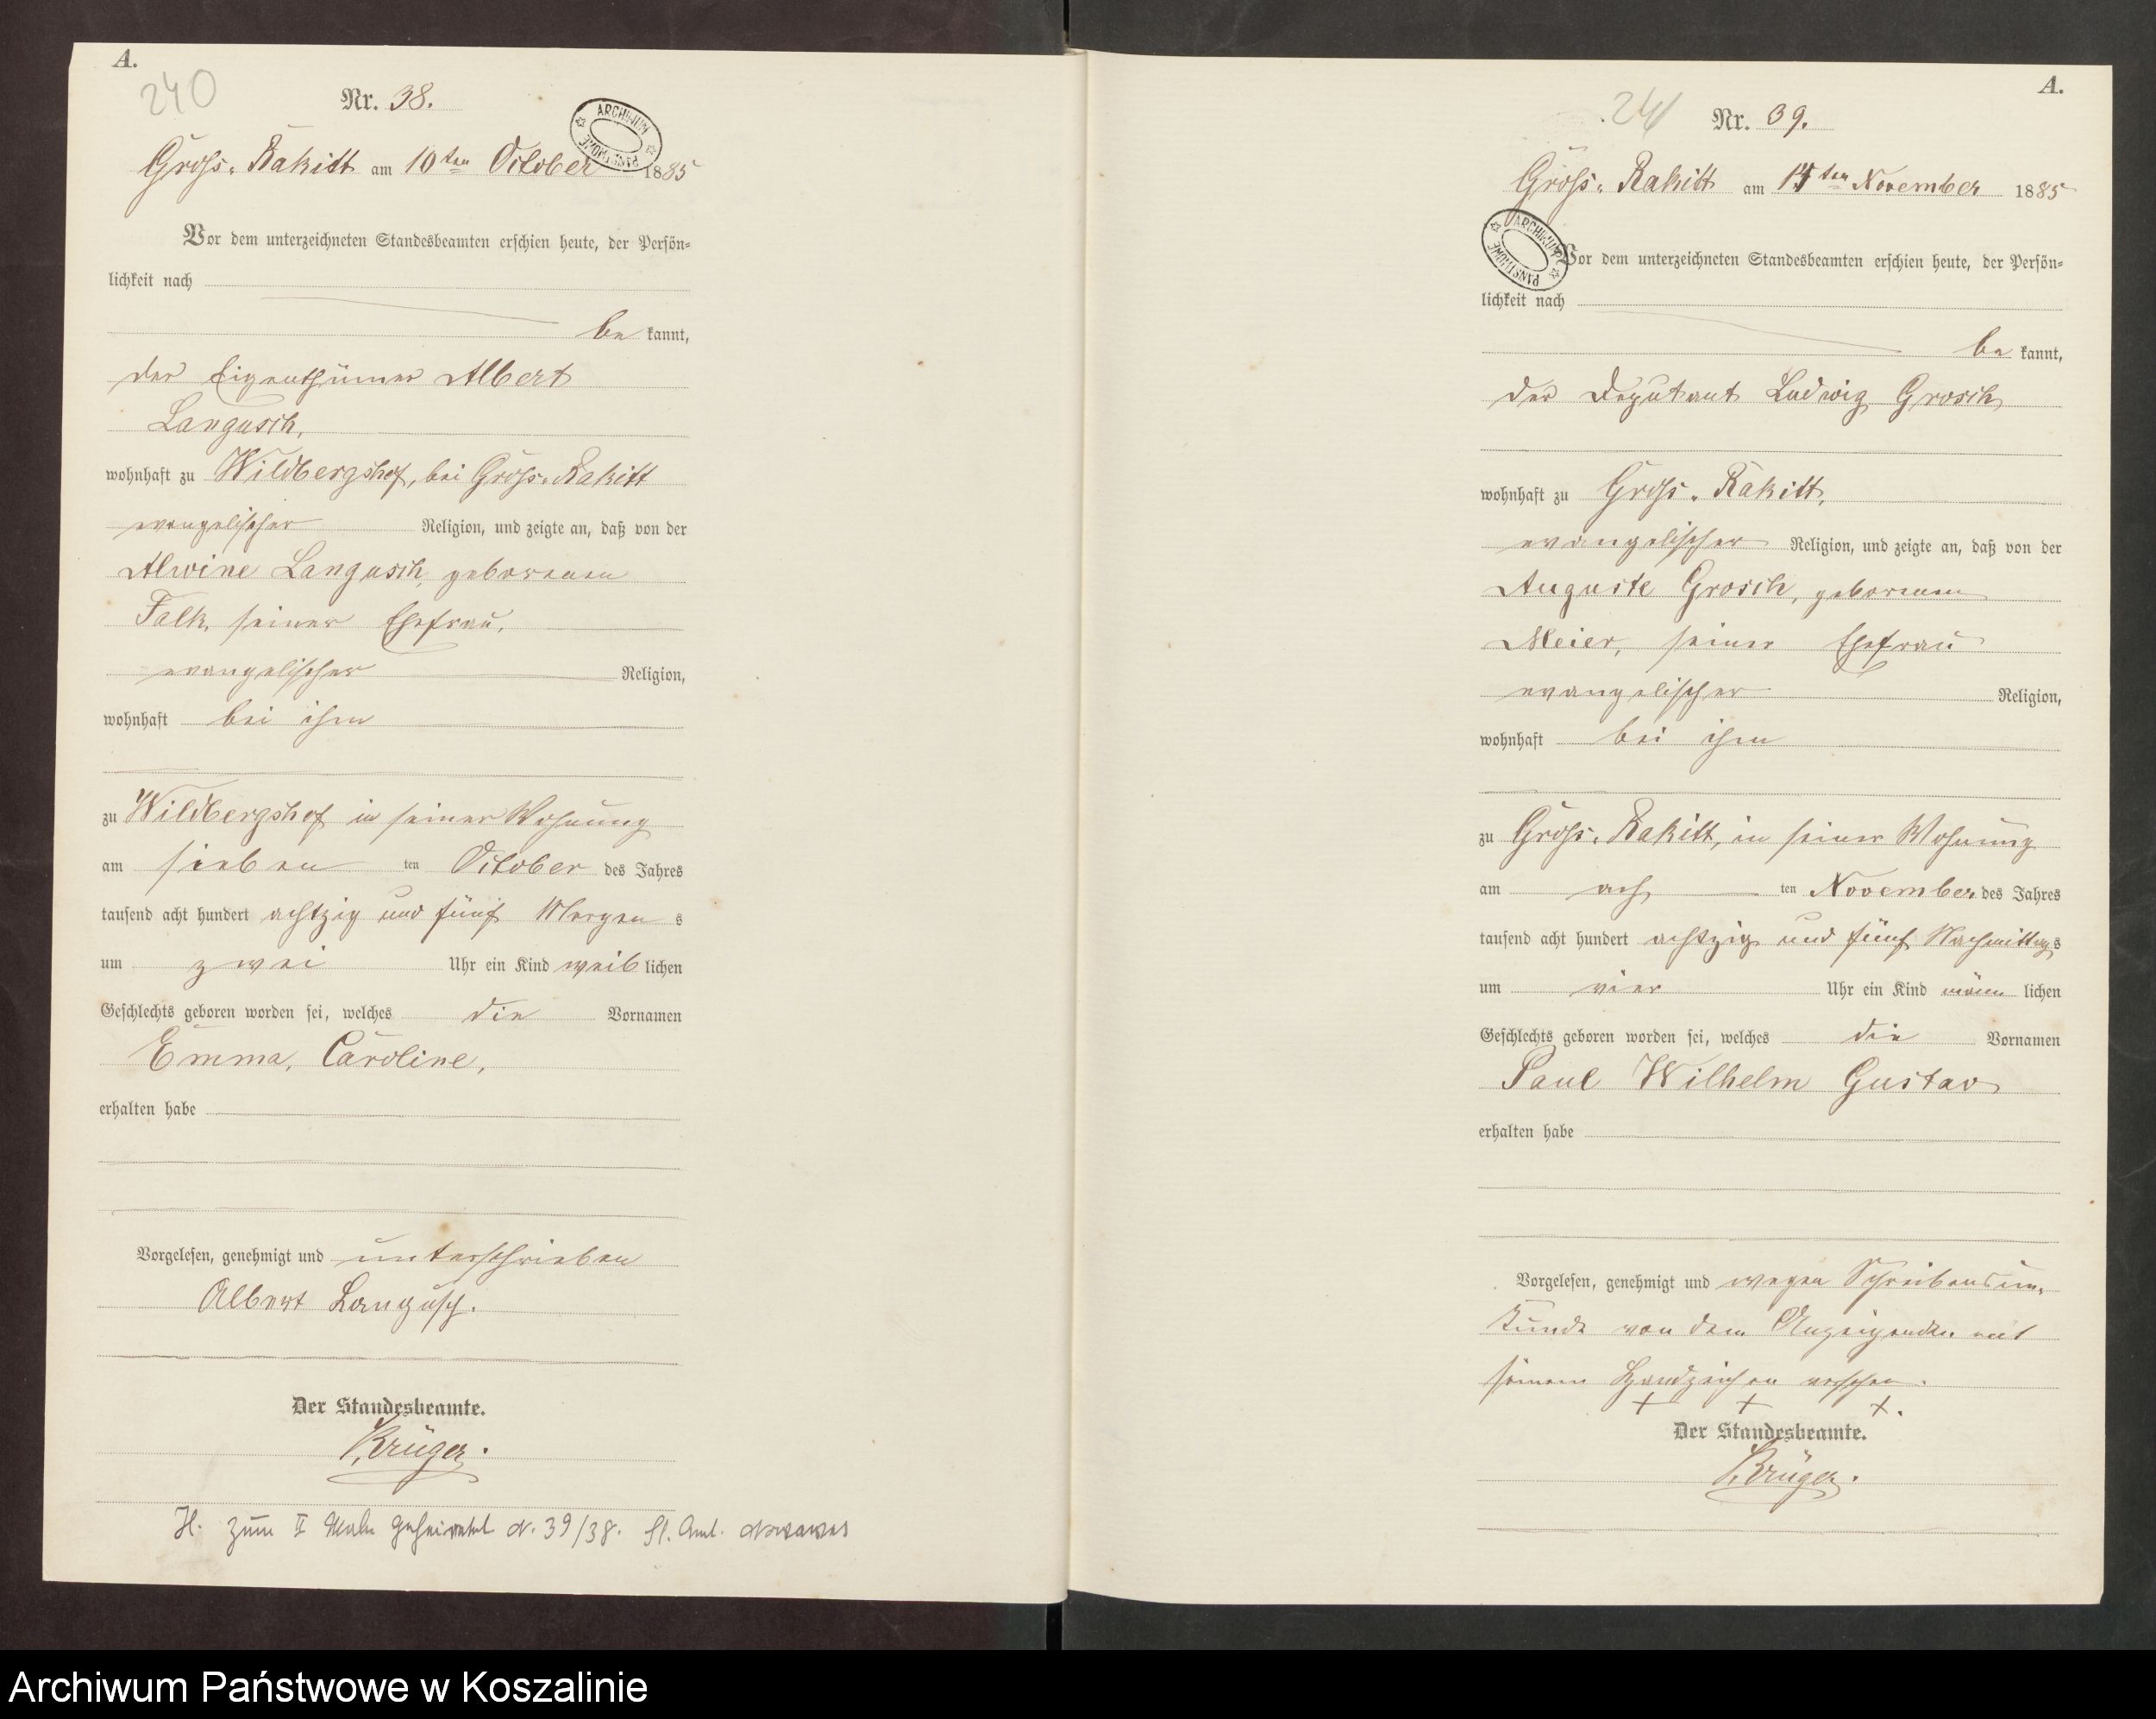 A.
240
Nr. 38.
ARCHIWUM PAŃSTWOWE
Gross-Rakitt am 10ten October 1885
Vor dem unterzeichneten Standesbeamten erschien heute, der Persön-
lichkeit nach
be kannt,
der Eigenthümer Albert
Langusch,
wohnhaft zu Wildbergshof, bei Gross-Rakitt
evangelischer Religion, und zeigte an, daß von der
Alwine Langusch, geborenen
Falk, seiner Ehefrau,
evangelischer Religion,
wohnhaft bei ihm
zu Wildbergshof in seiner Wohnung
am sieben ten October des Jahres
tausend acht hundert achtzig und fünf Morgen s
um zwei Uhr ein Kind weib lichen
Geschlechts geboren worden sei, welches die Vornamen
Emma, Caroline,
erhalten habe
Vorgelesen, genehmigt und unterschrieben
Albert Langusch.
Der Standesbeamte.
Krüger.
H. zum II Male geheiratet N. 39/38. St. Amt.
A.
241
Nr. 39.
Gross-Rakitt am 14ten November 1885
ARCHIWUM PAŃSTWOWE
Vor dem unterzeichneten Standesbeamten erschien heute, der Persön-
lichkeit nach
be kannt,
der Deputant Ludwig Grosch
wohnhaft zu Gross-Rakitt,
evangelischer Religion, und zeigte an, daß von der
Auguste Grosch, geborenen
Meier, seiner Ehefrau
evangelischer Religion,
wohnhaft bei ihm
zu Gross-Rakitt, in seiner Wohnung
am ach ten November des Jahres
tausend acht hundert achtzig und fünf Nachmittag s
um vier Uhr ein Kind männ lichen
Geschlechts geboren worden sei, welches die Vornamen
Paul Wilhelm Gustav
erhalten habe
Vorgelesen, genehmigt und wegen Schreibensun-
kunde von dem Anzeigenden mit
seinem Handzeichen versehen.
+ + +.
Der Standesbeamte.
Krüger.
Archiwum Państwowe w Koszalinie